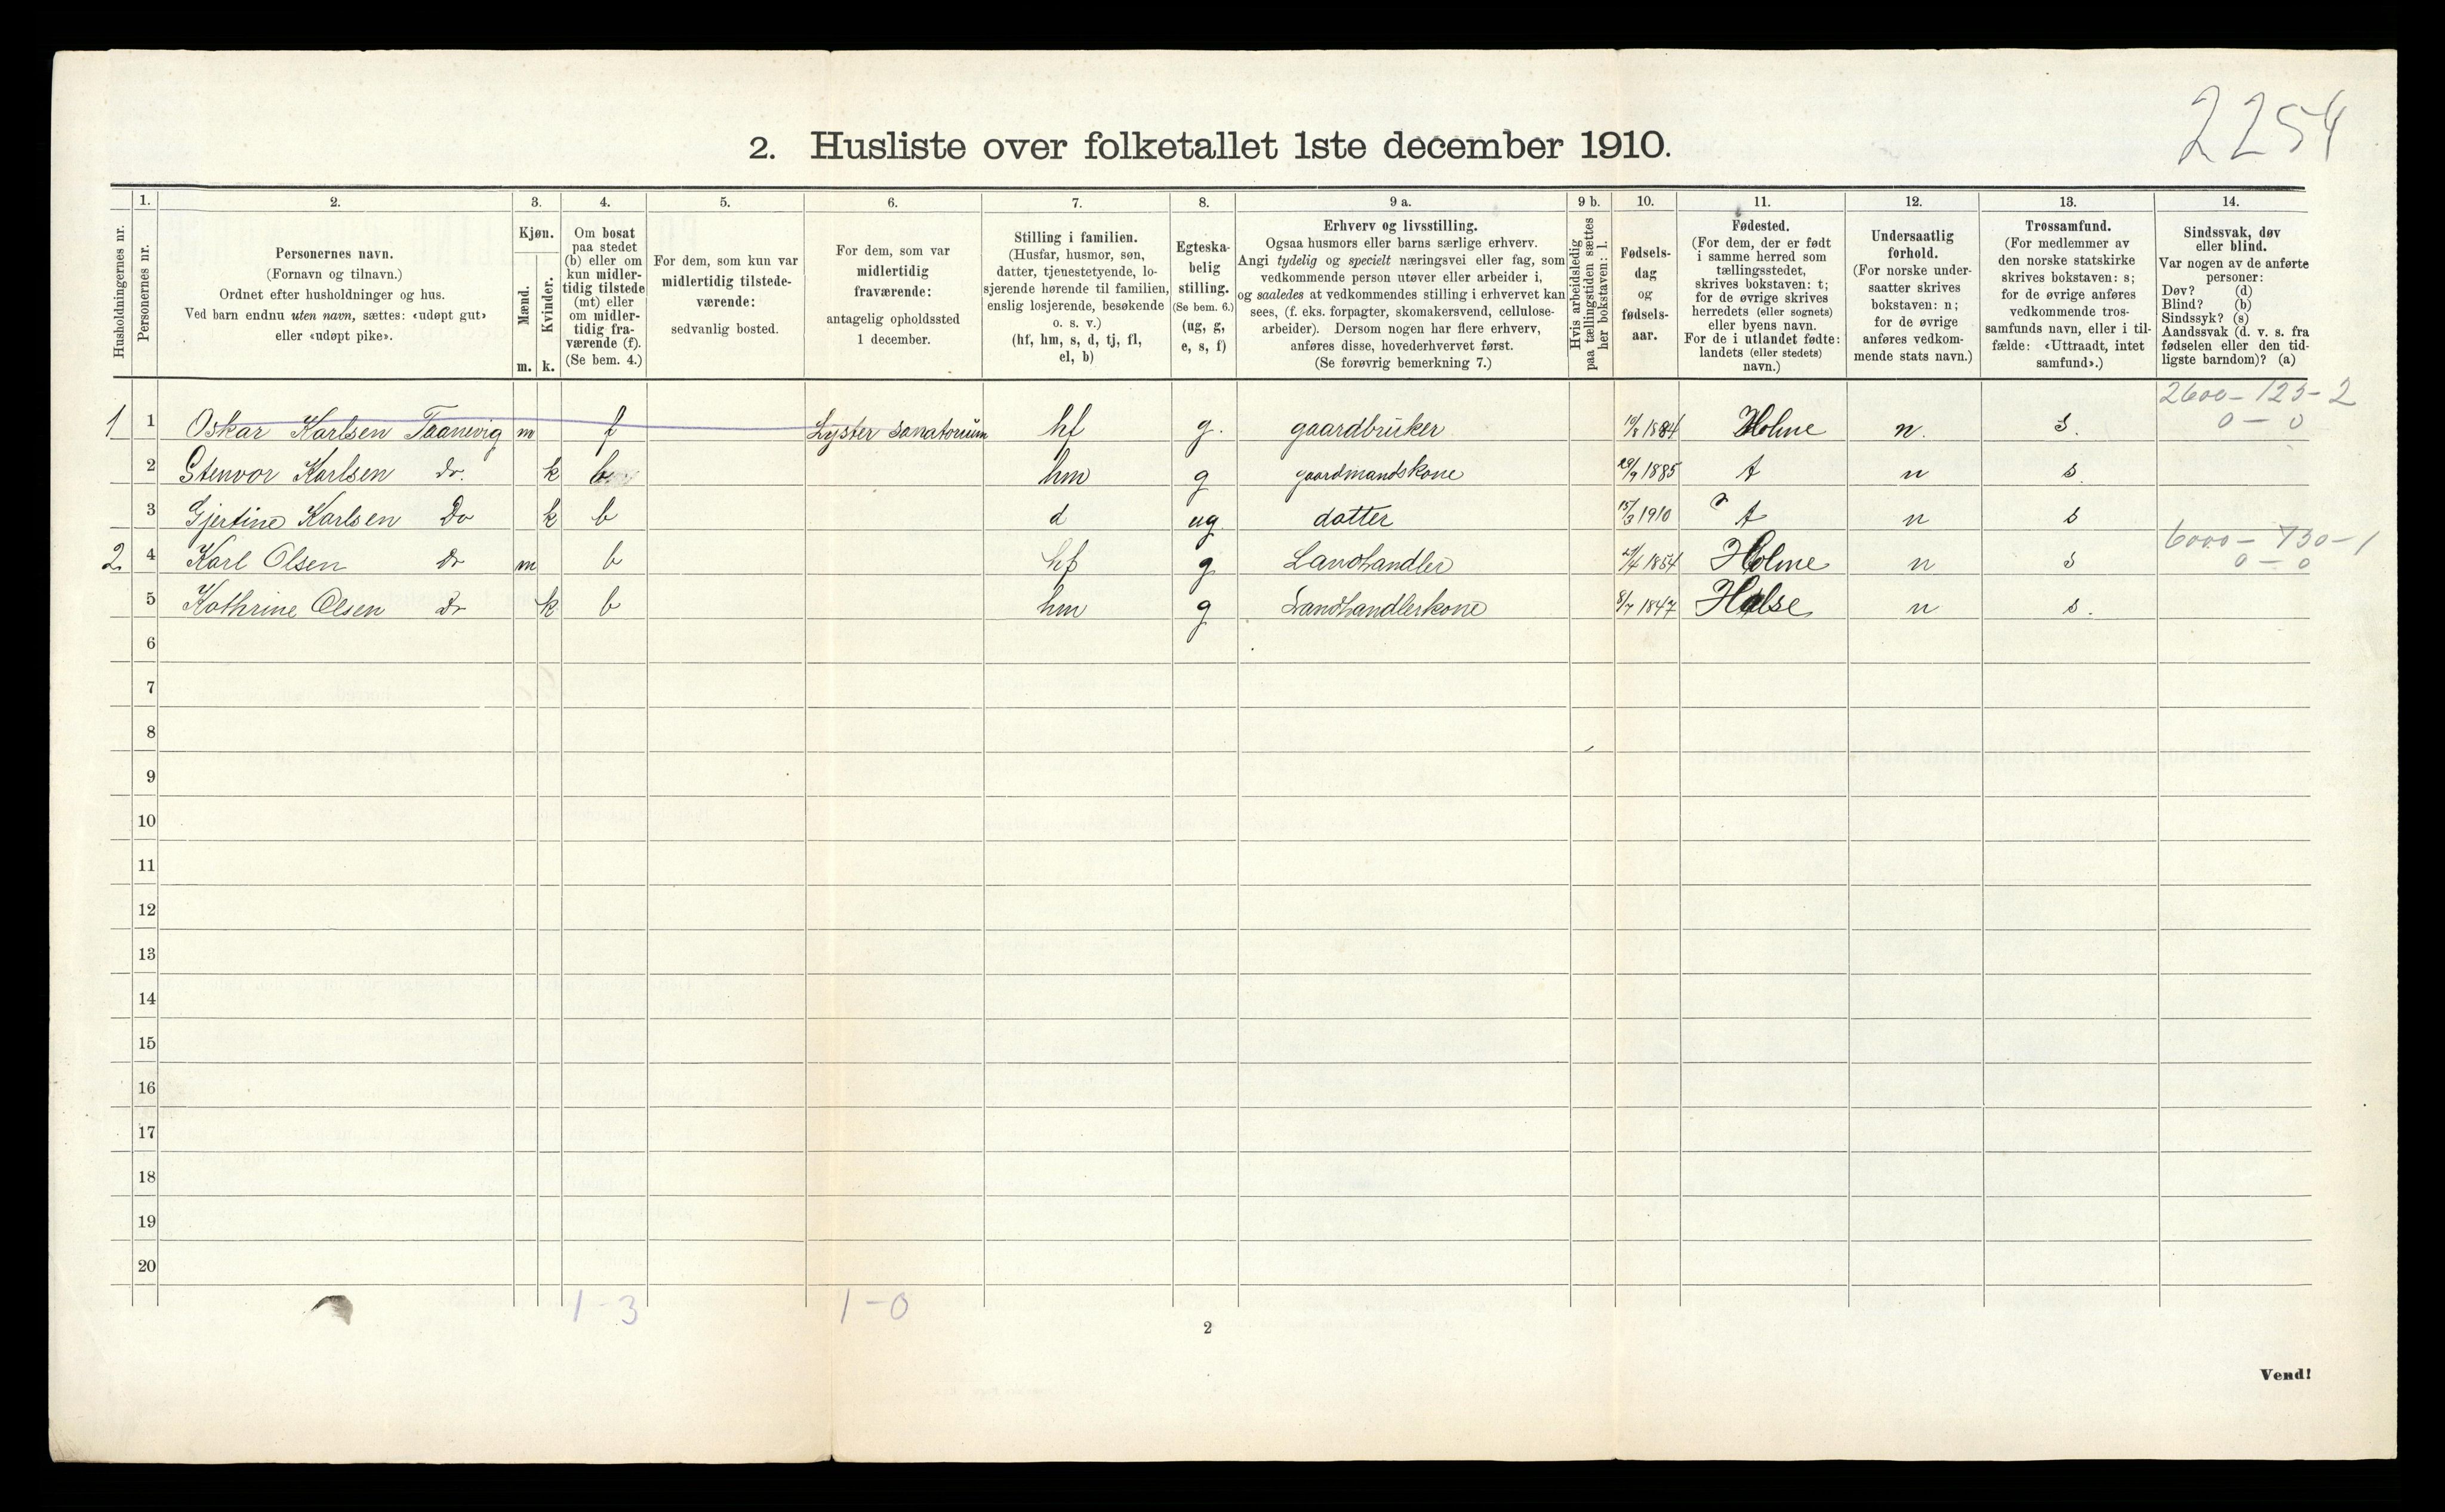 2254
2. Husliste over folketallet 1ste december 1910.
1. 2. 3. 4. 5. 6. 7. 8. 9 a. 9 b. 10. 11. 12. 13. 14.
Husholdningernes nr.
Personernes nr.
Personernes navn.
(Fornavn og tilnavn.)
Ordnet efter husholdninger og hus.
Ved barn endnu uten navn, sættes: «udøpt gut»
eller «udøpt pike».
Kjøn.
Mænd.
Kvinder.
m. k.
Om bosat
paa stedet
(b) eller om
kun midler-
tidig tilstede
(mt) eller
om midler-
tidig fra-
værende (f).
(Se bem. 4.)
For dem, som kun var
midlertidig tilstede-
værende:
sedvanlig bosted.
For dem, som var
midlertidig
fraværende:
antagelig opholdssted
1 december.
Stilling i familien.
(Husfar, husmor, søn,
datter, tjenestetyende, lo-
sjerende hørende til familien,
enslig losjerende, besøkende
o. s. v.)
(hf, hm, s, d, tj, fl,
el, b)
Egteska-
belig
stilling.
(Se bem. 6.)
(ug, g,
e, s, f)
Erhverv og livsstilling.
Ogsaa husmors eller barns særlige erhverv.
Angi tydelig og specielt næringsvei eller fag, som
vedkommende person utøver eller arbeider i,
og saaledes at vedkommendes stilling i erhvervet kan
sees, (f. eks. forpagter, skomakersvend, cellulose-
arbeider). Dersom nogen har flere erhverv,
anføres disse, hovederhvervet først.
(Se forøvrig bemerkning 7.)
Hvis arbeidsledig
paa tællingstiden sættes
her bokstaven: l.
Fødsels-
dag
og
fødsels-
aar.
Fødested.
(For dem, der er født
i samme herred som
tællingsstedet,
skrives bokstaven: t;
for de øvrige skrives
herredets (eller sognets)
eller byens navn.
For de i utlandet fødte:
landets (eller stedets)
navn.)
Undersaatlig
forhold.
(For norske under-
saatter skrives
bokstaven: n;
for de øvrige
anføres vedkom-
mende stats navn.)
Trossamfund.
(For medlemmer av
den norske statskirke
skrives bokstaven: s;
for de øvrige anføres
vedkommende tros-
samfunds navn, eller i til-
fælde: «Uttraadt, intet
samfund».)
Sindssvak, døv
eller blind.
Var nogen av de anførte
personer:
Døv? (d)
Blind? (b)
Sindssyk? (s)
Aandssvak (d. v. s. fra
fødselen eller den tid-
ligste barndom)? (a)
2600 – 123 – 2
1 1 Oskar Karlsen Taanevig m f Lyster sanatorium hf g. gaardbruker 1884 Holme n. s. 0 – 0
2 Stenvor Karlsen do. k b hm g gaardmandskone 29/9 1885 t n s.
3 Gjertine Karlsen Do k b d ug. datter 15/3 1910 t n s
6000 – 730 – 1
2 4 Karl Olsen do m b hf g Landhandler 1854 Holme n s 0 – 0
5 Kathrine Olsen do k b hm g Landhandlerkone 8/7 1847 Halse n s.
6
7
8
9
10
11
12
13
14
15
16
17
18
19
20
1 – 3 1 – 0
2
Vend!